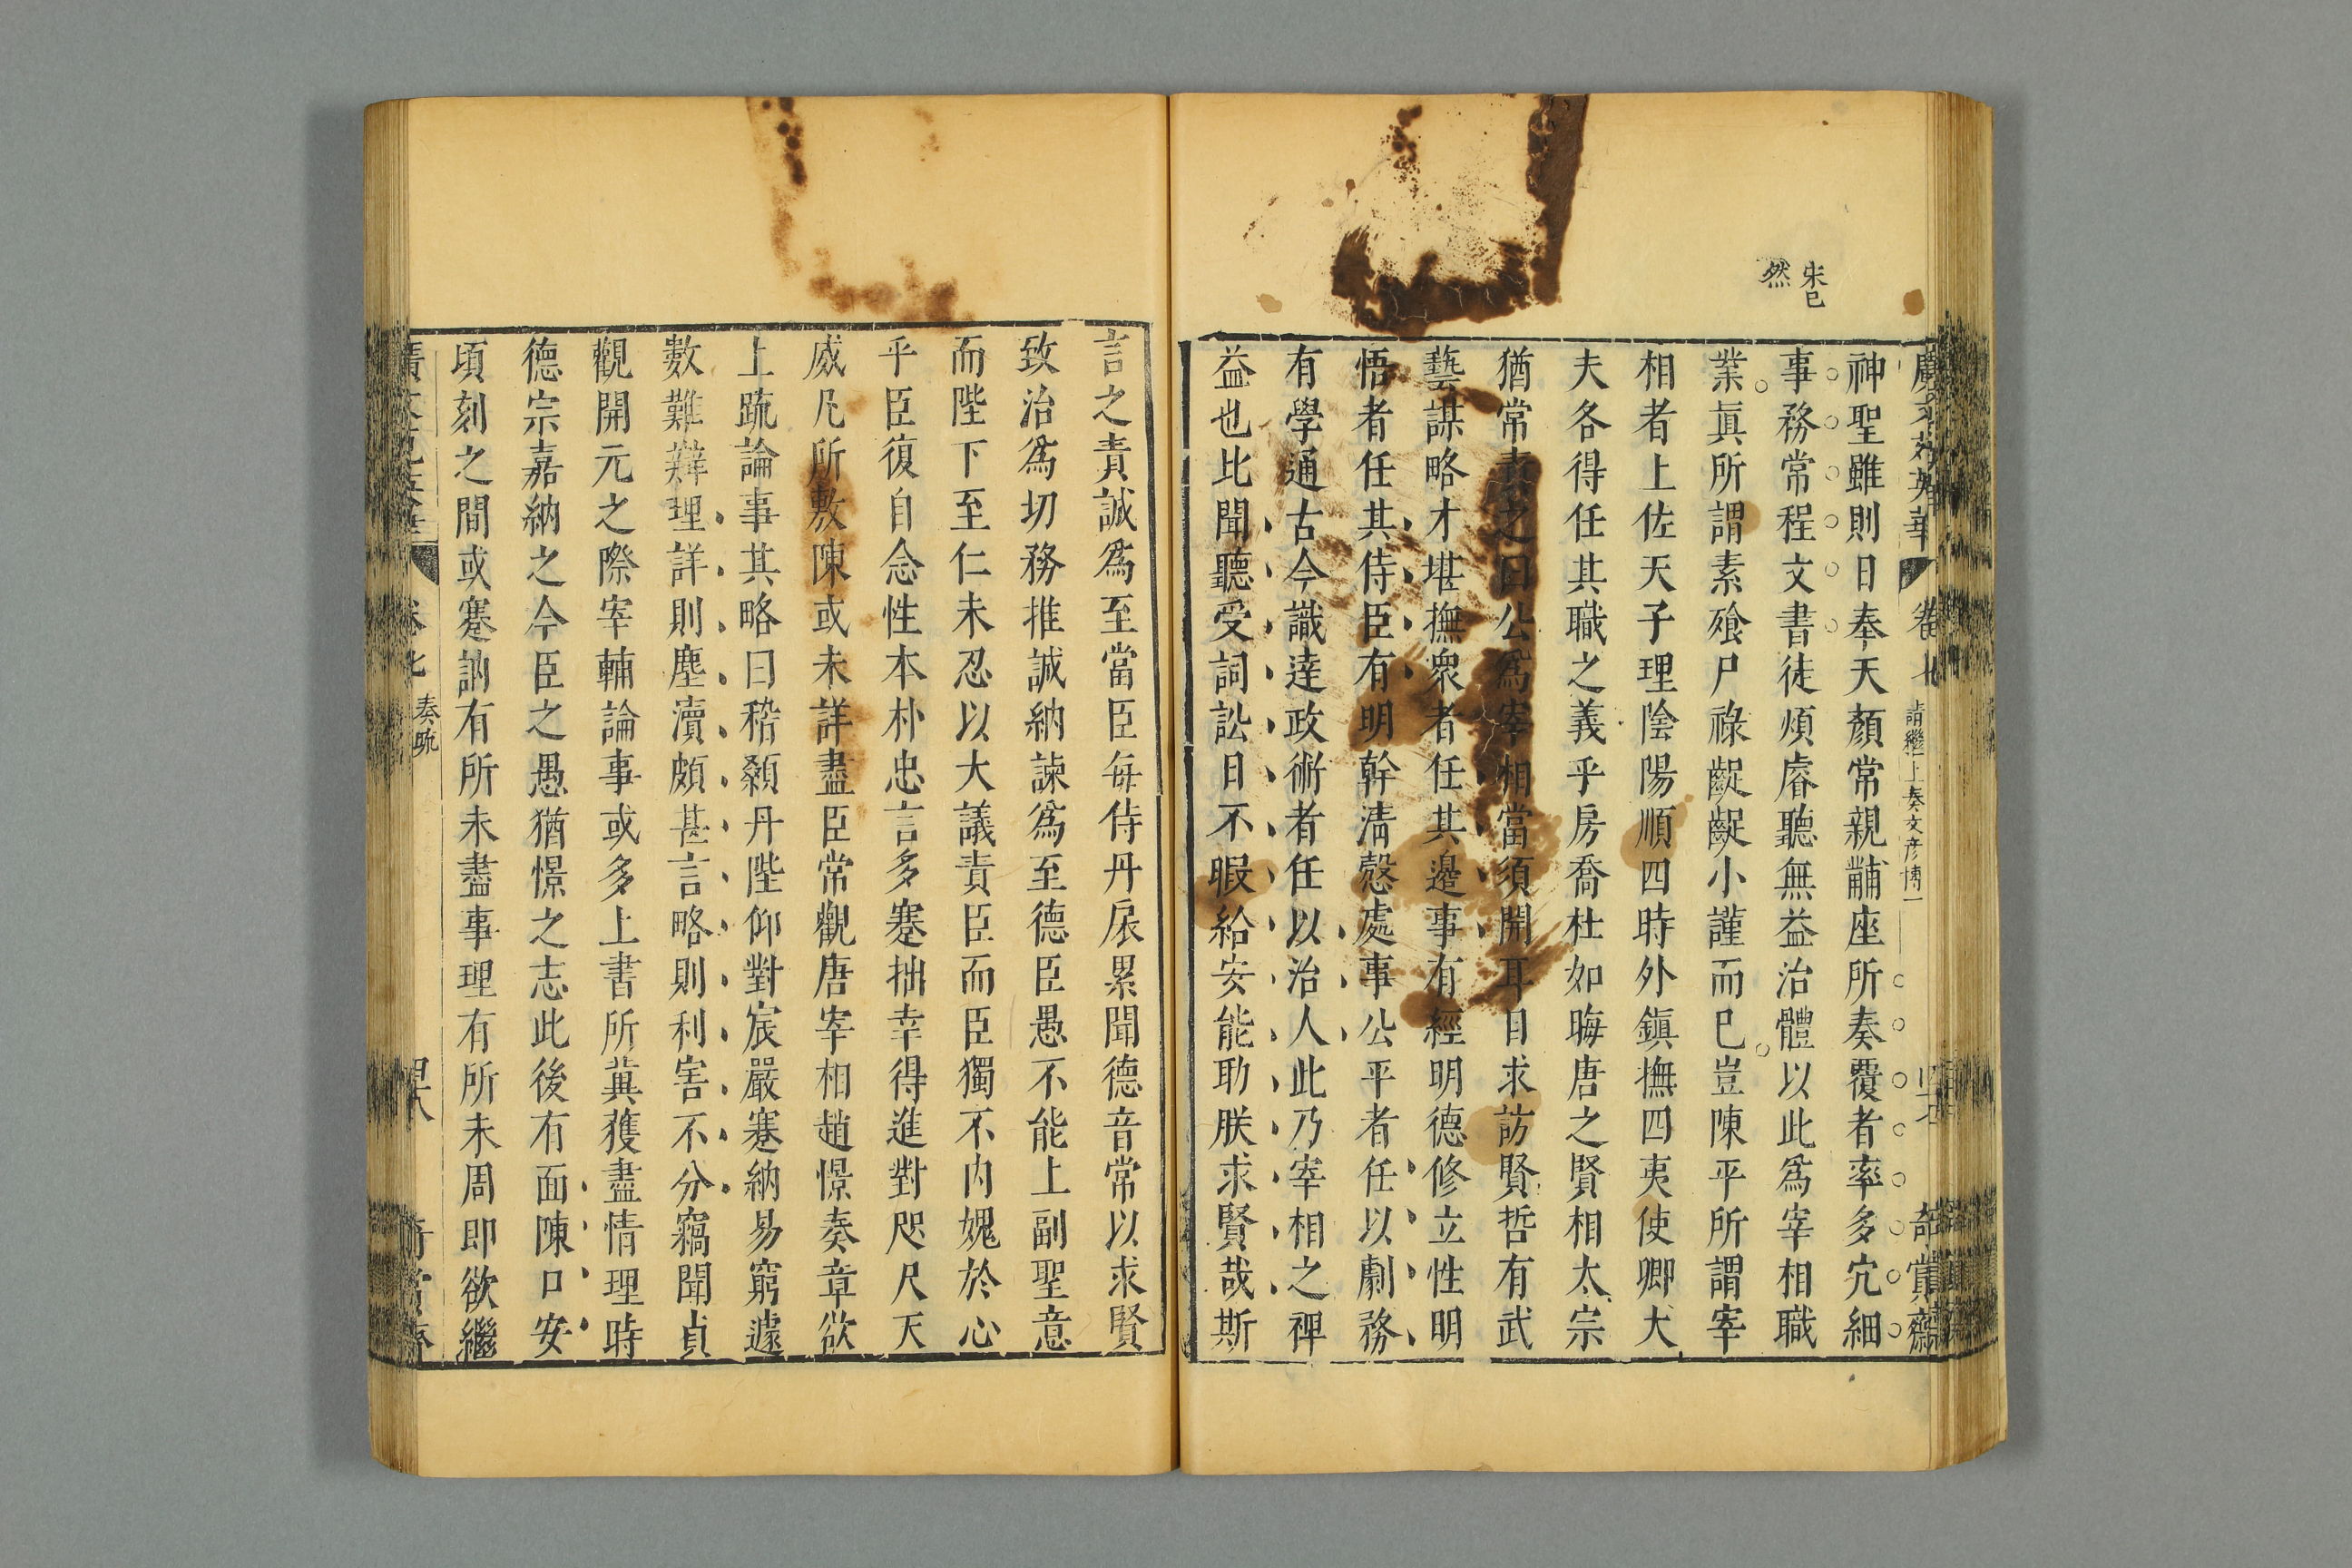 宋已
然
廣文苑英華 卷七 請繼上奏文彥博一 奇賞齋
神聖雖則日奉天顏常親黼座所奏覆者率多宂細
事務常程文書徒煩睿聽無益治體以此爲宰相職
業眞所謂素飱尸祿齪齪小謹而已豈陳平所謂宰
相者上佐天子理陰陽順四時外鎭撫四夷使卿大
夫各得任其職之義乎房喬杜如晦唐之賢相太宗
猶常責之曰公爲宰相當須開耳目求訪賢哲有武
藝謀略才堪撫衆者任其邊事有經明德修立性明
悟者任其侍臣有明幹淸慤處事公平者任以劇務
有學通古今識達政術者任以治人此乃宰相之裨
益也比聞聽受詞訟日不暇給安能助朕求賢哉斯
言之責誠爲至當臣每侍丹扆累聞德音常以求賢
致治爲切務推誠納諫爲至德臣愚不能上副聖意
而陛下至仁未忍以大議責臣而臣獨不内媿於心
乎臣復自念性本朴忠言多蹇拙幸得進對咫尺天
威凡所敷陳或未詳盡臣常觀唐宰相趙憬奏章欲
上䟽論事其略曰稽顙丹陛仰對宸嚴蹇納易窮遽
數難辯理詳則塵瀆頗甚言略則利害不分竊聞貞
觀開元之際宰輔論事或多上書所冀獲盡情理時
德宗嘉納之今臣之愚猶憬之志此後有面陳口安
頃刻之間或蹇訥有所未盡事理有所未周即欲繼
卷七 奏䟽